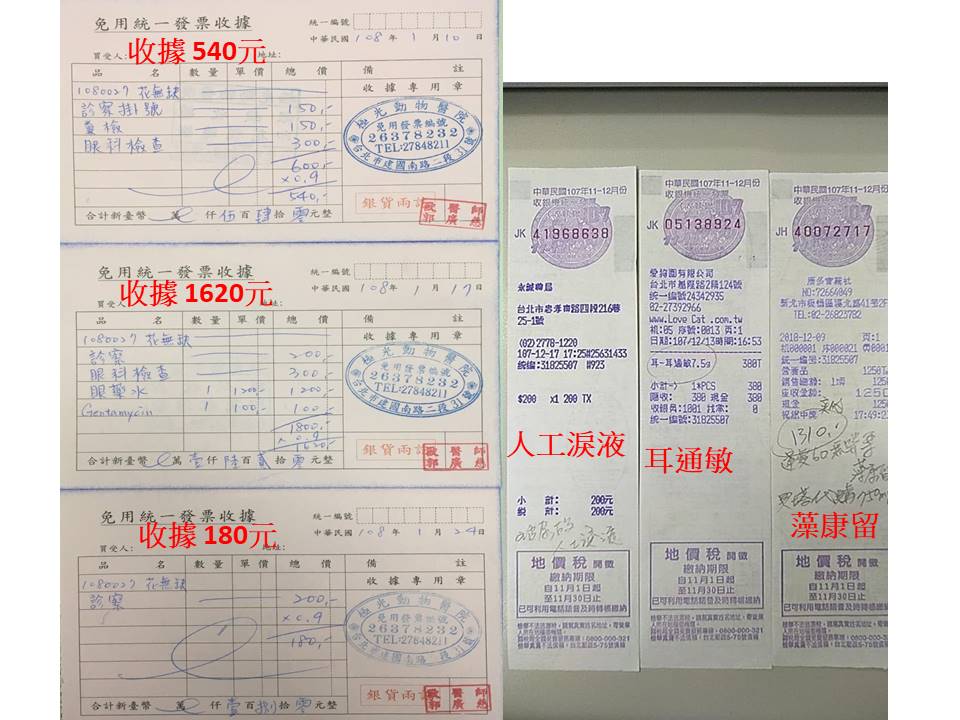 免用統一發票收據
統一編號
中華民國 108 年 1 月 10 日
收據 540元
買受人:
地址:
品 名 數量 單價 總 價 備 註
收據專用章
1080027 花無缺
診察掛號 150,-
眼科檢查 300,-
600,-
×0.9
540,-
極光動物醫院
免用發票編號
26378232
TEL:27848211
台北市建國南路二段31號
合計新臺幣 萬 仟 伍 百 肆 拾 零 元整
銀貨兩訖
免用統一發票收據
統一編號
中華民國 108 年 1 月 17 日
收據 1620元
買受人:
品 名 數量 單價 總 價 備 註
收據專用章
1080027 花無缺
診察 200,-
眼科檢查 300,-
眼藥水 1 1200,- 1200,-
Gentamycin 1 100,- 100,-
1800,-
×0.9
1620,-
極光動物醫院
免用發票編號
26378232
TEL:27848211
台北市建國南路二段31號
合計新臺幣 萬 壹 仟 陸 百 貳 拾 零 元整
銀貨兩訖
免用統一發票收據
統一編號
中華民國 108 年 1 月 24 日
收據 180元
買受人:
地址:
品 名 數量 單價 總 價 備 註
收據專用章
1080027 花無缺
診察 200,-
×0.9
180,-
極光動物醫院
免用發票編號
26378232
TEL:27848211
台北市建國南路二段31號
合計新臺幣 萬 仟 壹 百 捌 拾 零 元整
銀貨兩訖
中華民國107年11-12月份
收銀機統一發票
JK 41968638
永誠藥局
台北市忠孝東路四段216巷
25-1號
(02)2778-1220
107-12-17 17:25#25631433
統編:31825507 #923
$200 x1 200 TX
人工淚液
小 計: 200元
稅 計: 200元
人工淚液
地價稅 開徵
繳納期限
自11月1日起
至11月30日止
已可利用電話語音及跨轉帳繳納
中華民國107年11-12月份
收銀機統一發票
JK 05138924
愛貓園有限公司
台北市基隆路2段124號
統一編號24342935
02-27392966
www.Love Cat .com.tw
機:05 序號:0013 頁:1
日期:107/12/13時間:16:53
耳-耳通敏7.5g 380T
小計-> 1*PCS 380
應收: 380 現金 380
收銀員:1001 找零: 0
統一編號:31825507
耳通敏
地價稅 開徵
繳納期限
自11月1日起
至11月30日止
已可利用電話語音及跨轉帳繳納
中華民國107年11-12月份
JH 40072717
NO:72664049
TEL:02-26823782
2018-12-09 頁:1
統一編:31825507
現金
17:49:2
1310.-
藻康留
地價稅 開徵
繳納期限
自11月1日起
至11月30日止